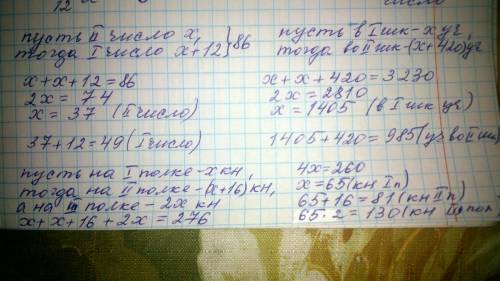 12
пусть II число x,
тогда I число x+12 } 86
x+x+12=86
2x = 74
x = 37 (II число)
37+12=49 (I число)
пусть в I шк-x уч,
тогда во II шк-(x+420) уч
x+x+420=3230
2x=2810
x=1405 (в I шк уч)
1405+420=985 (уч во II шк)
пусть на I полке-x кн,
тогда на II полке-(x+16) кн,
а на III полке-2x кн
x+x+16+2x=276
4x=260
x=65 (кн I п)
65+16=81 (кн II п)
65·2=130 (кн III пол)